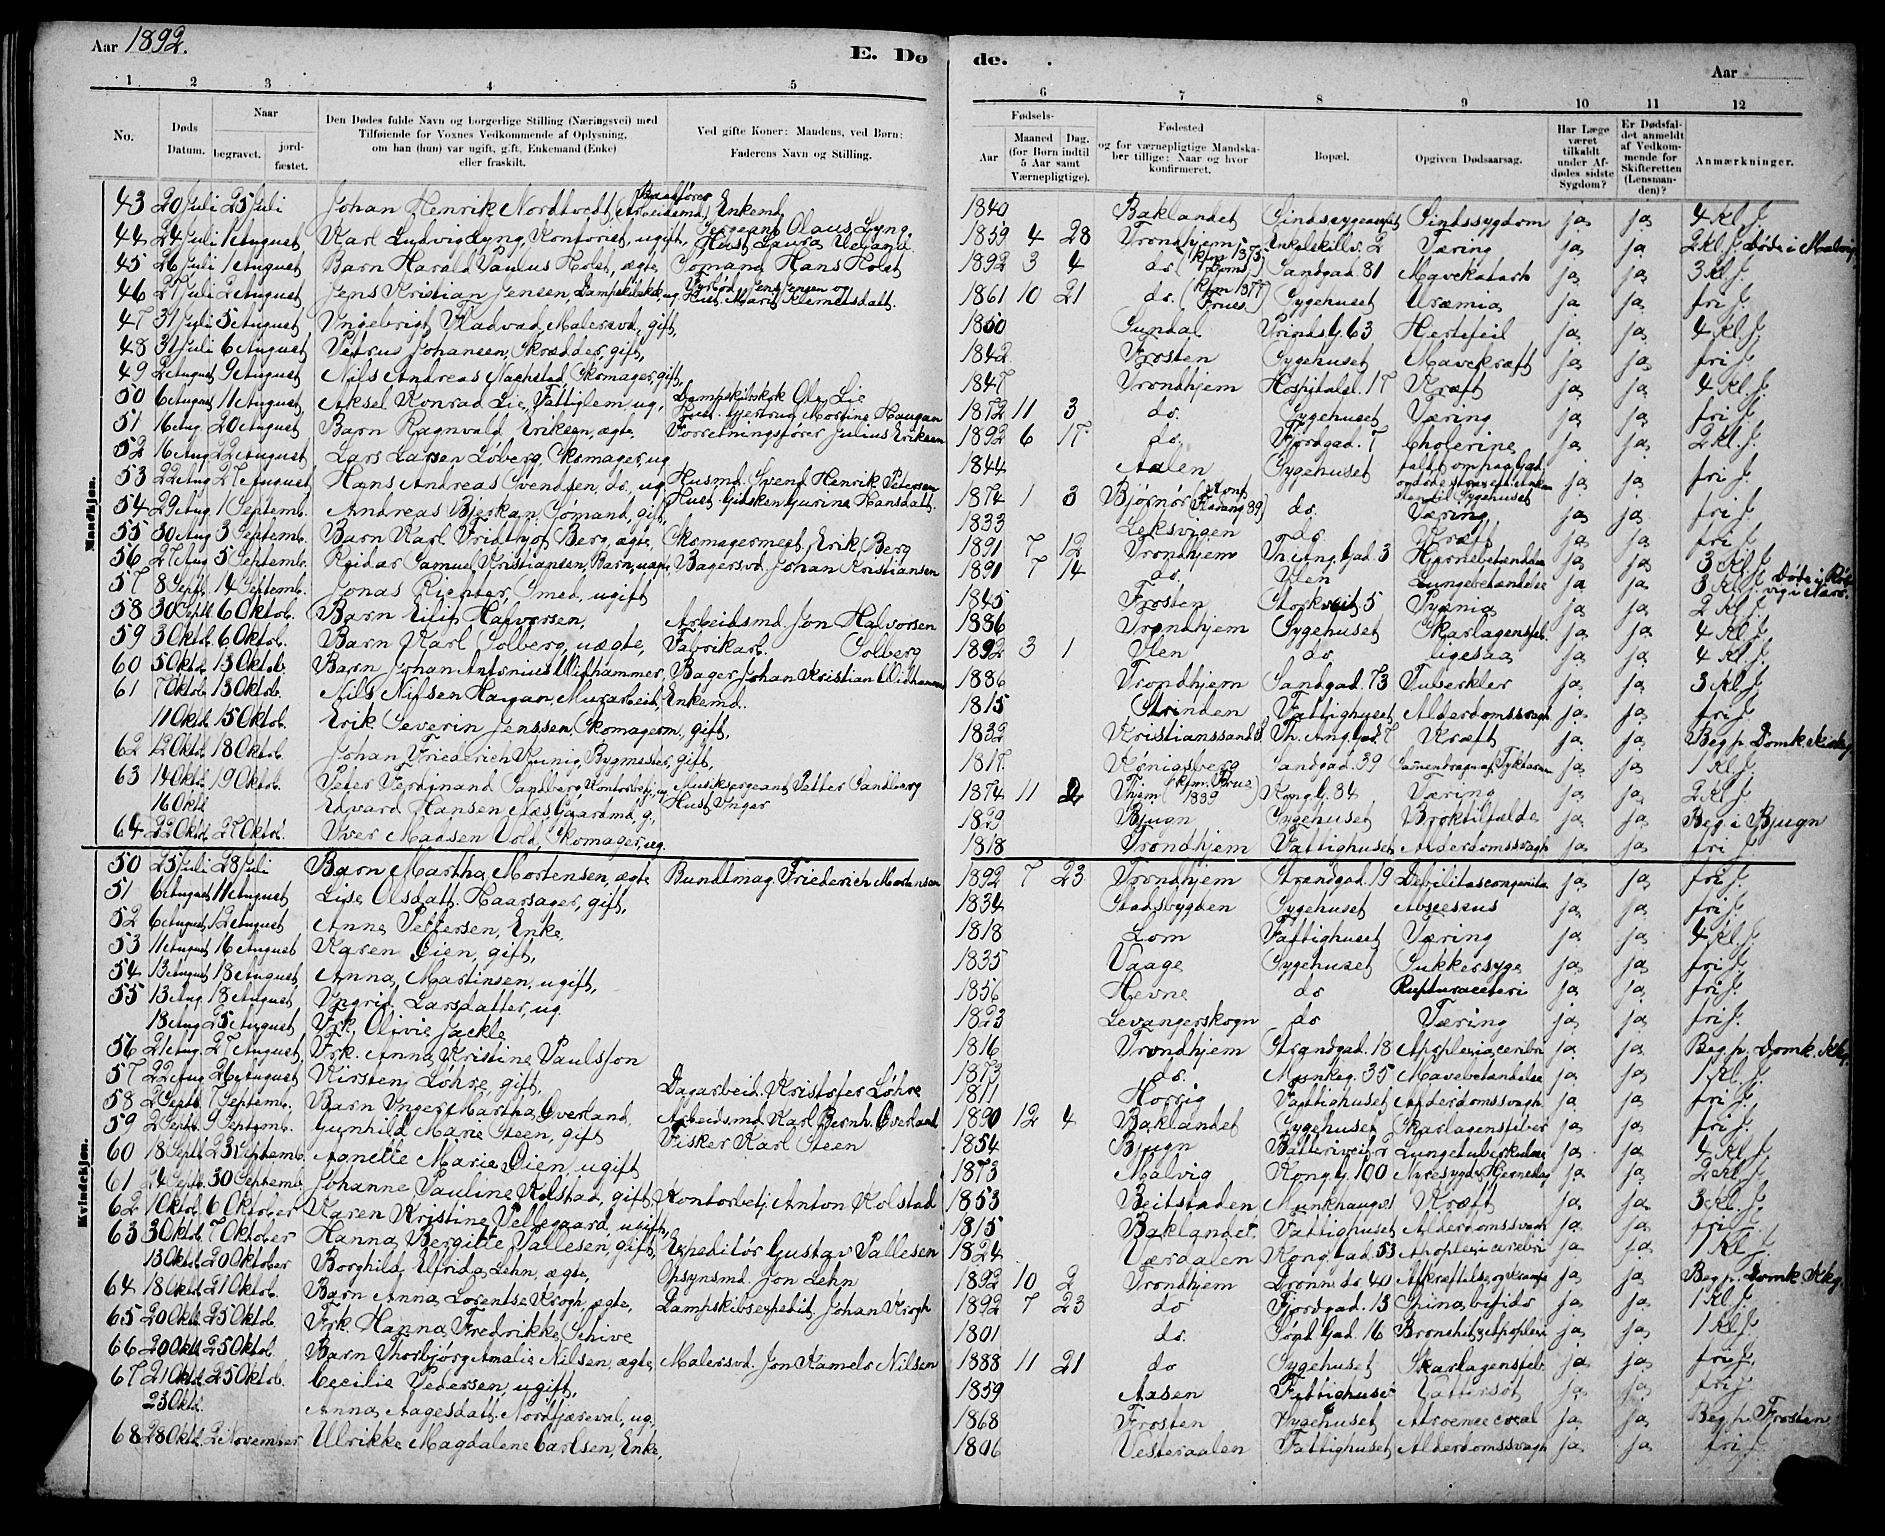 Aar 1892.
E. Dø
de.
Aar
1 2 3 4 5 6 7 8 9 10 11 12
No.
Døds Datum.
Naar
begravet.
jord-
fæstet.
Den Dødes fulde Navn og borgerlige Stilling (Næringsvei) med
Tilføiende for Voxnes Vedkommende af Oplysning,
om han (hun) var ugift, gift, Enkemand (Enke)
eller fraskilt.
Ved gifte Koner: Mandens, ved Børn:
Faderens Navn og Stilling.
Fødsels-
Aar
Maaned Dag.
(for Børn indtil
5 Aar samt
Værnepligtige).
Fødested
og for værnepligtige Mandska-
ber tillige: Naar og hvor
konfirmeret.
Bopæl.
Opgiven Dødsaarsag.
Har Læge
været
tilkaldt
under Af-
dødes sidste
Sygdom?
Er Dødsfal-
det anmeldt
af Vedkom-
mende for
Skifteretten
(Lensman-
den)?
Anmærkninger.
Mandkjøn.
43 20 Juli 25 Juli Johan Henrik Nordtvedt, Arbeidsmd, Enkemd 1840 Baklandet Sindssygeasylet Sindssygdom ja ja 4 Kl. J.
44 24 Juli 1 August Karl Ludvig Lyng, Kontorist, ugift, Sergeant Olaus Lyng, Hust. Laura 1859 4 28 Trondhjem Enkelskillv. 2 Tæring ja ja 2 Kl. J. Døde i Malvig
45 26 Juli 1 August Barn Harald Paulus Holst, ægte, Sømand Hans Holst 1892 3 4 do. Sandgad. 81 Mavekatarh ja ja 3 Kl. J.
46 27 Juli 2 August Jens Kristian Jensen, ug. Jens Jensen og Hust. Marit Klemetsdatt. 1861 10 21 do. (Kfm 1877 Frues) Sygehuset Uræmia ja ja fri J.
47 31 Juli 5 August Ingebrigt Hadvad, Malersvd, gift, 1850 Sundal Prinds G. 63 Hertefeil ja ja 4 Kl. J.
48 31 Juli 6 August Petrus Johansen, Skrædder, gift, 1842 Frosten Sygehuset Mavekræft ja ja fri J.
49 2 August 9 August Nils Andreas Nachstad, Skomager, gift, 1847 Trondhjem Hospitalsl. 17 Kræft ja ja 4 Kl. J.
50 6 August 11 August Aksel Konrad Lie, Fattiglem, ug, Dampskibskok Ole Lie, Hust. Gjertrud Martine Haugan 1872 11 3 do. Sygehuset Tæring ja ja fri J.
51 16 Aug. 20 August Barn Ragnvald Eriksen, ægte, Forretningsfører Julius Eriksen 1892 6 17 do. Fjordgad. 7 Cholerine ja ja 2 Kl. J.
52 16 Aug 22 August Lars Larsen Løberg, Skomager, ug 1844 Aalen Sygehuset ja ja fri J.
53 22 Aug 27 August Hans Andreas Svendsen, do, ug Husmd. Svend Henrik Petersen Hust. Gidsken Gurine Hansdatt. 1874 1 3 Bjørnør do. Tæring ja ja fri J.
54 29 Aug 1 Septemb. Andreas Bjerkan, Sømand, gift, 1833 Leksvigen do Kræft ja ja fri J.
55 30 Aug 3 Septemb. Barn Karl Fridthjof Berg, ægte, Skomagermest. Erik Berg 1891 7 12 Trondhjem Th. Ang. Gad. 3 Hjernebetændelse ja ja 3 Kl. J.
56 27 Aug 5 Septemb. Reidar Samuel Kristiansen, Barn, uægte, Bagersvd. Johan Kristiansen 1891 7 14 do. Ilen Lungebetændelse ja ja 3 Kl. J.
57 8 Sept. 14 Septemb. Jonas Richter, Smed, ugift 1845 Frosten Storkveit 5 Pyæmia ja ja 2 Kl. J.
58 30 Sept. 6 Oktob. Barn Eilif Halvorsen, Arbeidsmd. Jon Halvorsen 1886 Trondhjem Sygehuset Skarlagensfeb. ja ja 4 Kl. J.
59 3 Oktob. 6 Oktob. Barn Karl Solberg, uægte, Fabrikarb. Solberg 1892 3 1 Ilen do. ligesaa ja ja 4 Kl. J.
60 5 Oktob. 13 Oktob. Barn Johan Antonius Widhammer, Bager Johan Kristian Widhammer 1886 Trondhjem Sandgad. 73 Tuberkler ja ja 3 Kl. J.
61 7 Oktob. 13 Oktob. Nils Nilsen Haugan, Murarbeid., Enkemd. 1815 Strinden Fattighuset Alderdomssvagh ja ja fri J.
11 Oktob. 15 Oktob. Erik Severin Jenssen, Skomagerm, gift, 1832 Kristianssund Th. Ang. Gad. 7 Kræft ja ja Beg. p. Domk. Kirkeg
62 12 Oktob. 18 Oktob. Johan Friederich Bygmester, gift, 1817 Königsberg Sandgad. 39 ja ja 1 Kl. J.
63 14 Oktob. 19 Oktob. Peter Ferdinand Sandberg, Kontorbetj, ug, Musiksergeant Petter Sandberg Hust. Inger 1874 11 2 Thjem (Kfm. Frue 1889) Kong. G. 84 Tæring ja ja 2 Kl. J.
16 Oktb Edvard Hansen Næs, Gaardmd, g, 1829 Bjugn Sygehuset Broktilfælde ja ja Beg. i Bjugn
64 22 Oktob. 27 Oktob. Iver Madsen Vold, Skomager, ug. 1818 Trondhjem Fattighuset Alderdomssvagh ja ja fri J.
Kvindekjøn.
50 25 Juli 28 Juli Barn Martha Mortensen, ægte Bundtmag. Friederich Mortensen 1892 7 23 Trondhjem Strandgad. 19 Debilitas congenita ja ja fri J.
51 6 August 11 August Lise Olsdatt. Haarsager, gift, 1834 Stadsbygden Sygehuset Abscessus ja ja fri J.
52 6 August 12 August Anne Pettersen, Enke, 1818 Lom Fattighuset Tæring ja ja 4 Kl. J.
53 11 August 16 August Karen Øien, gift, 1835 Vaage Sygehuset Sukkersyge ja ja fri J.
54 13 August 18 August Anna Martinsen, ugift, 1856 Hevne do Ruptura ja ja fri J.
55 13 Aug. 18 August Ingrid Larsdatter, ug. 1823 Levangerskogn do Tæring ja ja fri J.
18 Aug. 25 August Frk. Olivie Jackle 1816 Trondhjem Strandgad. 18 Apoplexia cerebri ja ja Beg p. Domk. Kkg.
56 21 Aug. 27 August Frk. Anna Kristine Paulsson 1873 do. Munkeg. 35 Mavebetændelse ja ja 1 Kl. J.
57 22 Aug 26 August Kirsten Løhre, gift, Dagarbeid. Kristofer Løhre 1811 Horrig Fattighuset Alderdomssvagh ja ja fri J.
58 2 Septb. 7 Septemb. Barn Inger Martha Overland, Arbeidsmd Karl Bernh. Overland 1890 12 4 Baklandet Sygehuset Skarlagensfeber ja ja fri J.
59 2 Sept. 9 Septemb. Gunhild Marie Steen, gift Fisker Karl Steen 1854 Bjugn Batteriveit. 7 Lungetuberkulose ja ja 4 Kl. J.
60 18 Sept. 23 Septemb. Anette Marie Øien, ugift 1873 Malvig Kong. G. 100 ja ja 2 Kl. J.
61 24 Sept. 30 Septemb. Johanne Pauline Kolstad, gift, Kontorbetj. Anton Kolstad 1853 Beitstaden Munkhaugvei Kræft ja ja 3 Kl. J.
62 1 Oktob. 6 Oktober Karen Kristine Pellegaard, ugift, 1815 Baklandet Fattighuset Alderdomssvagh ja ja fri J.
63 30 Oktob. 7 Oktober Hanna Bergitte Pallesen, gift, Expeditør Gustav Pallesen 1824 Værdalen Kong. Gad. 53 Apoplexi cerebri ja ja 1 Kl. J.
13 Oktob. 20 Oktober Borghild Elfrida Lehn, ægte, Opsynsmd. Jon Lehn 1892 10 2 Trondhjem Dronn. do 40 ja ja Beg. p. Domk. Kkg.
64 18 Oktob. 21 Oktob. Barn Anna Lorentse Krogh, ægte, Dampskibsexpedit. Johan Krogh 1892 7 23 do Fjordgad. 13 Spina bifida ja ja 1 Kl. J.
65 20 Oktob. 25 Oktob. Frk. Hanna Fredrikke Schive 1801 do. Sønd. Gad. 16 ja ja 1 Kl. J.
66 20 Oktob. 25 Oktob. Barn Thorbjørg Amalie Nilsen, ægte, Malersvd. Jon Kamelo Nilsen 1888 11 21 do Sygehuset Skarlagensfeb ja ja fri J.
67 21 Oktob. 25 Oktob. Cecilie Pedersen, ugift, 1859 Aasen Fattighuset Vattersot ja ja fri J.
23 Oktb. Anna Aagesdatt. Nordfjæreval, ug, 1868 Frosten Sygehuset ja ja Beg p. Frosten
68 28 Oktb. 2 November Ulrikke Magdalene Carlsen, Enke, 1806 Vesteraalen Fattighuset Alderdomssvagh ja ja fri J.